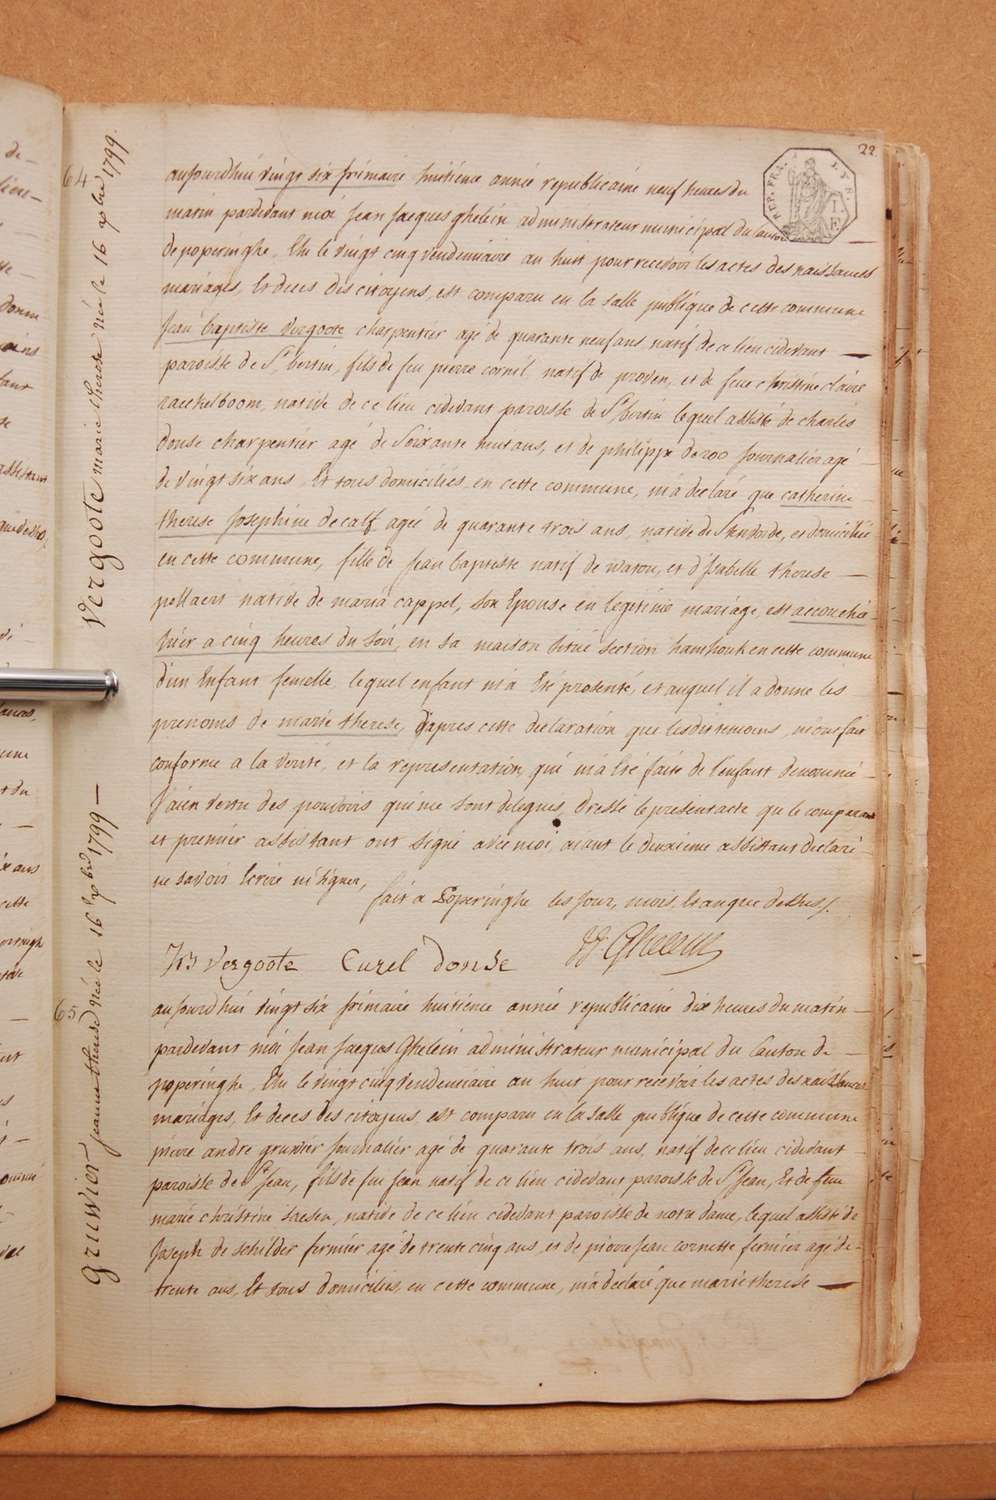 22
REP. FRA.
LYS.
64
Vergoote marie therese née le 16 xbre 1799.
aujourdhui vingt six frimaire huitieme année republicaine neuf heures du
matin pardevant moi Jean Jacques Ghelein administrateur municipal du Canton
de poperinghe. Elu le vingt cinq vendemiaire an huit pour recevoir les actes des naissances
mariages, Et deces des citoyens, est comparu en la salle publique de cette commune
Jean baptiste Vergoote charpentier agé de quarante neuf ans natif de ce lieu cidevant
paroisse de St bertin, fils de feu pierre corneil, natif de proven, et de feue christine claire
raeckelboom, native de ce lieu cidevant paroisse de St bertin lequel assisté de charles
donse charpentier agé de Soixante huit ans, et de philippe deroo Journalier agé
de vingt six ans. Et tous domiciliés en cette commune, m'a declaré que catherine
therese Josephine decalf, agée de quarante trois ans, native de, et domiciliée
en cette commune, fille de Jean baptiste natif de watou, et d'Isabelle therese
pellaert native de maria cappel, son Epouse en legitime mariage, est accouchée
hier a cinq heures du soir, en sa maison située section hamhouk en cette commune
d'un Enfant femelle, lequel enfant m'a Eté presenté, et auquel il a donné les
prenoms de marie therese, d'apres cette declaration que lesdits temoins, m'ont fait
conforme a la verité, et la representation, qui m'a Eté faite de l'enfant denommé
J'ai en vertu des pouvoirs qui me sont delegués, dressé le present acte que le comparant
et premier assistant ont signé avec moi, aiant le deuxieme assistant declaré
ne savoir Ecrire ni signer,
fait a Poperinghe les Jour, mois, Et an que dessus.
JB Vergoote Carel Donse JJ Ghelein
65
Gruwier jeanne therese née le 16 xbre 1799
aujourdhui vingt six frimaire huitieme année republicaine dix heures du matin
pardevant moi Jean Jacques Ghelein administrateur municipal du Canton de
poperinghe. Elu le vingt cinq vendemiaire an huit pour recevoir les actes des naissances
mariages, Et deces des citoyens, est comparu en la salle publique de cette commune
pierre andre gruwier Journalier agé de quarante trois ans, natif de ce lieu cidevant
paroisse de St Jean, fils de feu Jean natif de ce lieu cidevant paroisse de St Jean, Et de feue
marie christine Saesen, native de ce lieu cidevant paroisse de notre dame, lequel assisté de
Joseph de schilder fermier agé de trente cinq ans, et de pierre Jean cornette fermier agé de
trente ans, Et tous domiciliés, en cette commune, m'a declaré que marie therese